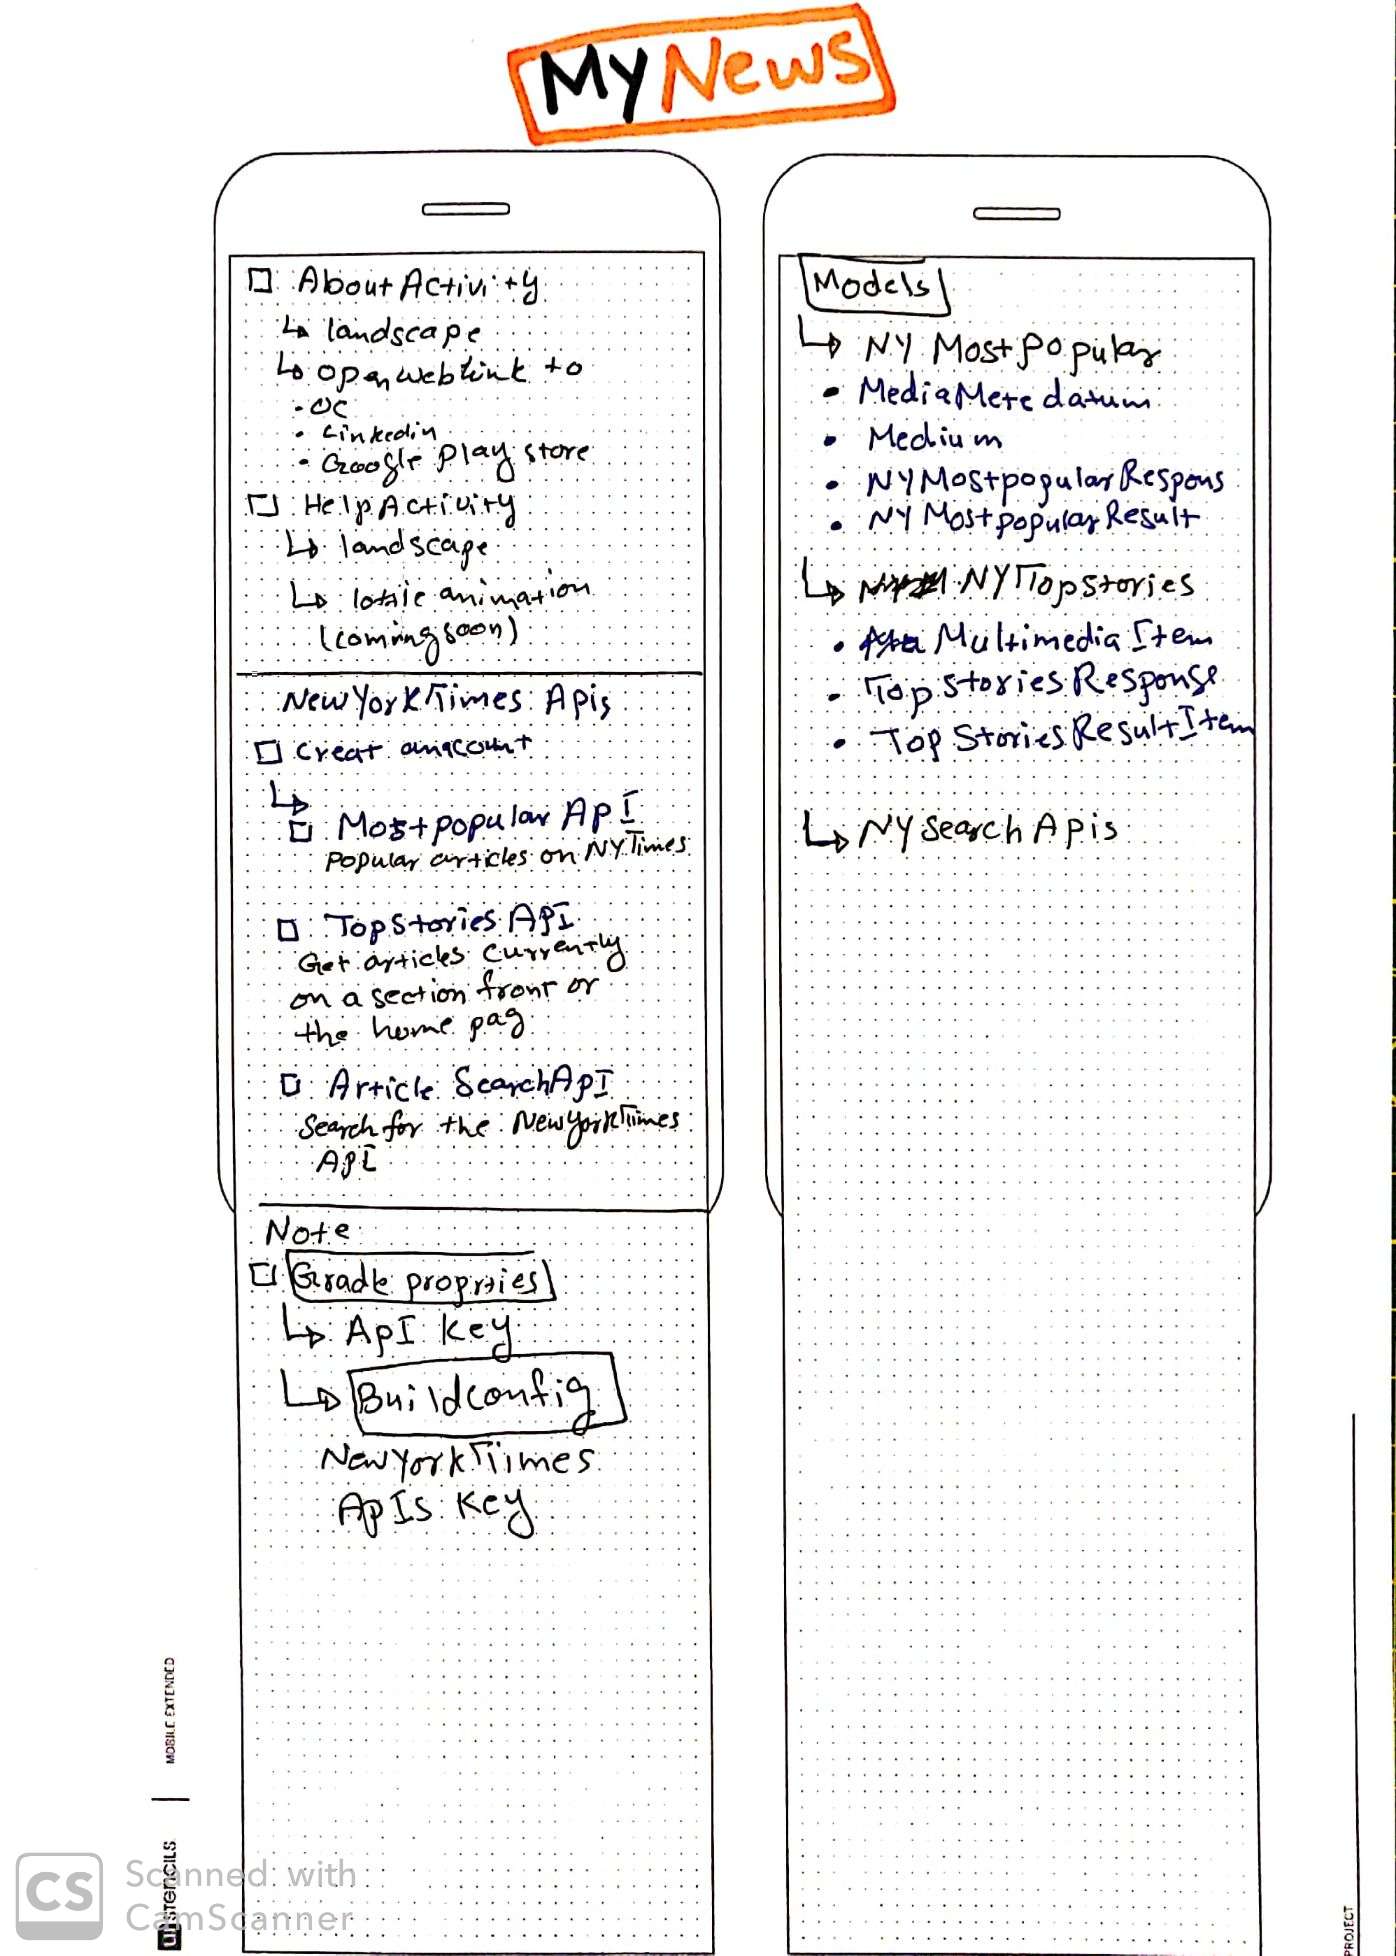 MyNews
About Activity
landscape
open weblink to
OC
Linkedin
Google Play store
Help Activity
landscape
lottie animation
(coming soon)
NewYorkTimes Apis
Creat anaccount
Mostpopular ApI
Popular articles on NYTimes
TopStories ApI
Get articles currently
on a section front or
the home pag
Article SearchApI
Search for the NewYorkTimes
ApI
Note
Gradle proprties
ApI Key
Buildconfig
NewYorkTimes
ApIs Key
Models
NY Mostpopular
MediaMetedatum
Medium
NYMostpopularRespons
NYMostpopularResult
NYTopStories
MultimediaItem
TopStoriesResponse
TopStoriesResultItem
NYSearchApis
MOBILE EXTENDED
UI STENCILS
PROJECT
CS
Scanned with
CamScanner